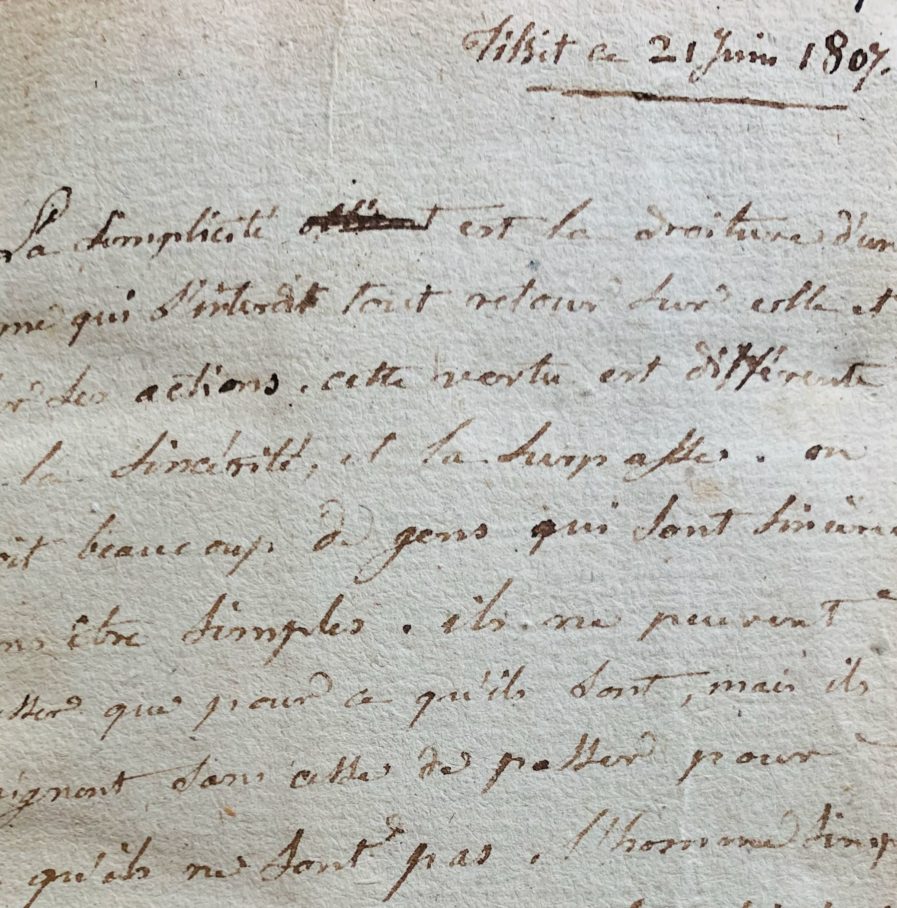 Tilsit ce 21 Juin 1807.
La simplicité est la droiture d'un
me qui s'interdit tout retour sur elle et
r ses actions. cette vertu est différente
la sincérité, et la surpasse. on
oit beaucoup de gens qui sont sincere
ns être simples. ils ne peuvent
sser que pour ce qu'ils sont, mais ils
aignent sans cesse de passer pour
qu'ils ne sont pas. l'homme simp